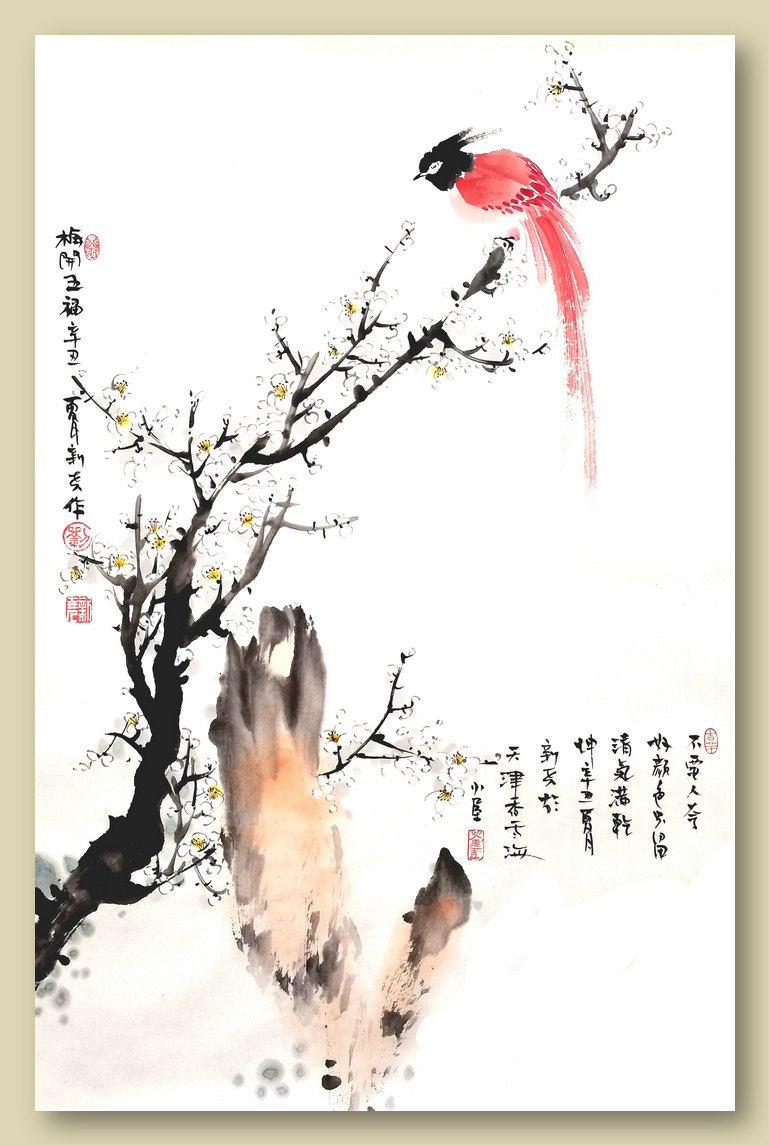 梅開五福辛丑夏月新作
劉
不要人夸
好顏色只留
清氣滿乾
坤辛丑夏月
新於
天津云海
小居